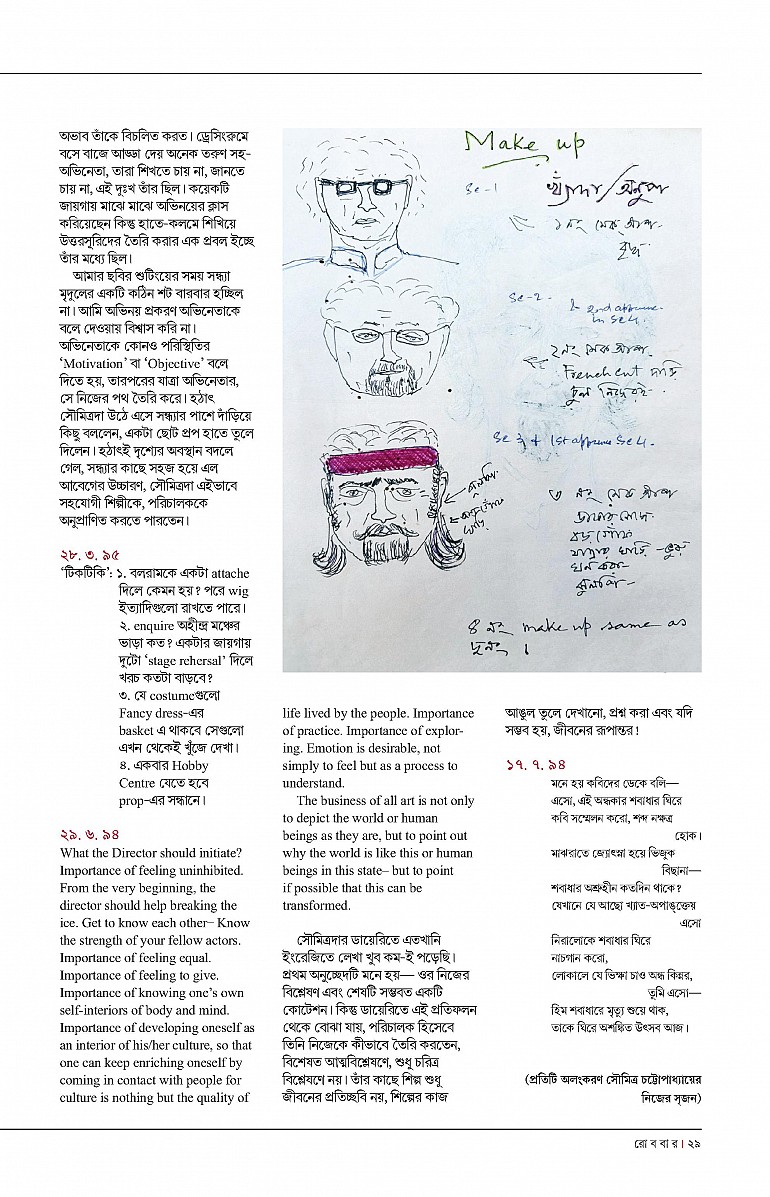 অভাব তাঁকে বিচলিত করত। ড্রেসিংরুমে
বসে বাজে আড্ডা দেয় অনেক তরুণ সহ-
অভিনেতা, তারা শিখতে চায় না, জানতে
চায় না, এই দুঃখ তাঁর ছিল। কয়েকটি
জায়গায় মাঝে মাঝে অভিনয়ের ক্লাস
করিয়েছেন কিন্তু হাতে-কলমে শিখিয়ে
উত্তরসূরিদের তৈরি করার এক প্রবল ইচ্ছে
তাঁর মধ্যে ছিল।
আমার ছবির শুটিংয়ের সময় সন্ধ্যা
মৃদুলের একটি কঠিন শট বারবার হচ্ছিল
না। আমি অভিনয় প্রকরণ অভিনেতাকে
বলে দেওয়ায় বিশ্বাস করি না।
অভিনেতাকে কোনও পরিস্থিতির
‘Motivation’ বা ‘Objective’ বলে
দিতে হয়, তারপরের যাত্রা অভিনেতার,
সে নিজের পথ তৈরি করে। হঠাৎ
সৌমিত্রদা উঠে এসে সন্ধ্যার পাশে দাঁড়িয়ে
কিছু বললেন, একটা ছোট প্রপ হাতে তুলে
দিলেন। হঠাৎই দৃশ্যের অবস্থান বদলে
গেল, সন্ধ্যার কাছে সহজ হয়ে এল
আবেগের উচ্চারণ, সৌমিত্রদা এইভাবে
সহযোগী শিল্পীকে, পরিচালককে
অনুপ্রাণিত করতে পারতেন।
২৮. ৩. ৯৫
‘টিকটিকি’: ১. বলরামকে একটা attache
দিলে কেমন হয়? পরে wig
ইত্যাদিগুলো রাখতে পারে।
২. enquire অহীন্দ্র মঞ্চের
ভাড়া কত? একটার জায়গায়
দুটো ‘stage rehersal’ দিলে
খরচ কতটা বাড়বে?
৩. যে costumeগুলো
Fancy dress-এর
basket এ থাকবে সেগুলো
এখন থেকেই খুঁজে দেখা।
৪. একবার Hobby
Centre যেতে হবে
prop-এর সন্ধানে।
২৯. ৬. ৯৪
What the Director should initiate?
Importance of feeling uninhibited.
From the very beginning, the
director should help breaking the
ice. Get to know each other– Know
the strength of your fellow actors.
Importance of feeling equal.
Importance of feeling to give.
Importance of knowing one’s own
self-interiors of body and mind.
Importance of developing oneself as
an interior of his/her culture, so that
one can keep enriching oneself by
coming in contact with people for
culture is nothing but the quality of
Make up
Sc-1
খ্যাঁদা/অনুপ
১নং মেক আপ-
বৃদ্ধ
Sc-2.
& 2nd appearance
in Sc 4.
২নং মেক আপ.
French cut দাড়ি
চুল নিজেরই.
Sc 3 + 1st appearance Sc 4.
৩ নং মেক আপ
বড় গোঁফ
জুলপি-
৪ নং make up same as
দুনং ।
life lived by the people. Importance
of practice. Importance of explor-
ing. Emotion is desirable, not
simply to feel but as a process to
understand.
The business of all art is not only
to depict the world or human
beings as they are, but to point out
why the world is like this or human
beings in this state– but to point
if possible that this can be
transformed.
সৌমিত্রদার ডায়েরিতে এতখানি
ইংরেজিতে লেখা খুব কম-ই পড়েছি।
প্রথম অনুচ্ছেদটি মনে হয়— ওর নিজের
বিশ্লেষণ এবং শেষটি সম্ভবত একটি
কোটেশন। কিন্তু ডায়েরিতে এই প্রতিফলন
থেকে বোঝা যায়, পরিচালক হিসেবে
তিনি নিজেকে কীভাবে তৈরি করতেন,
বিশেষত আত্মবিশ্লেষণে, শুধু চরিত্র
বিশ্লেষণে নয়। তাঁর কাছে শিল্প শুধু
জীবনের প্রতিচ্ছবি নয়, শিল্পের কাজ
আঙুল তুলে দেখানো, প্রশ্ন করা এবং যদি
সম্ভব হয়, জীবনের রূপান্তর!
১৭. ৭. ৯৪
মনে হয় কবিদের ডেকে বলি—
এসো, এই অন্ধকার শবাধার ঘিরে
কবি সম্মেলন করো, শব্দ নক্ষত্র
হোক।
মাঝরাতে জ্যোৎস্না হয়ে ভিজুক
বিছানা—
শবাধার অশ্রুহীন কতদিন থাকে?
যেখানে যে আছো খ্যাত-অপাঙ্‌ক্তেয়
এসো
নিরালোকে শবাধার ঘিরে
নাচগান করো,
লোকালে যে ভিক্ষা চাও অন্ধ কিন্নর,
তুমি এসো—
হিম শবাধারে মৃত্যু শুয়ে থাক,
তাকে ঘিরে অশঙ্কিত উৎসব আজ।
(প্রতিটি অলংকরণ সৌমিত্র চট্টোপাধ্যায়ের
নিজের সৃজন)
রো ব বা র। ২৯